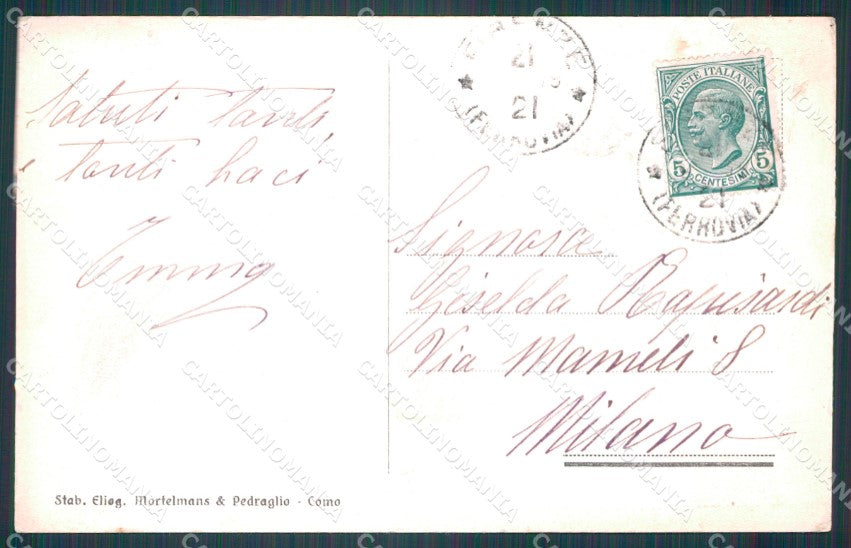 Saluti tanti,
e tanti baci
Emma
FIRENZE
21
21
(FERROVIA)
POSTE ITALIANE
5 CENTESIMI 5
21
(FERROVIA)
Signora
Giselda Rapisardi
Via Mameli 8
Milano
Stab. Eliog. Mortelmans & Pedraglio - Como
CARTOLINOMANIA